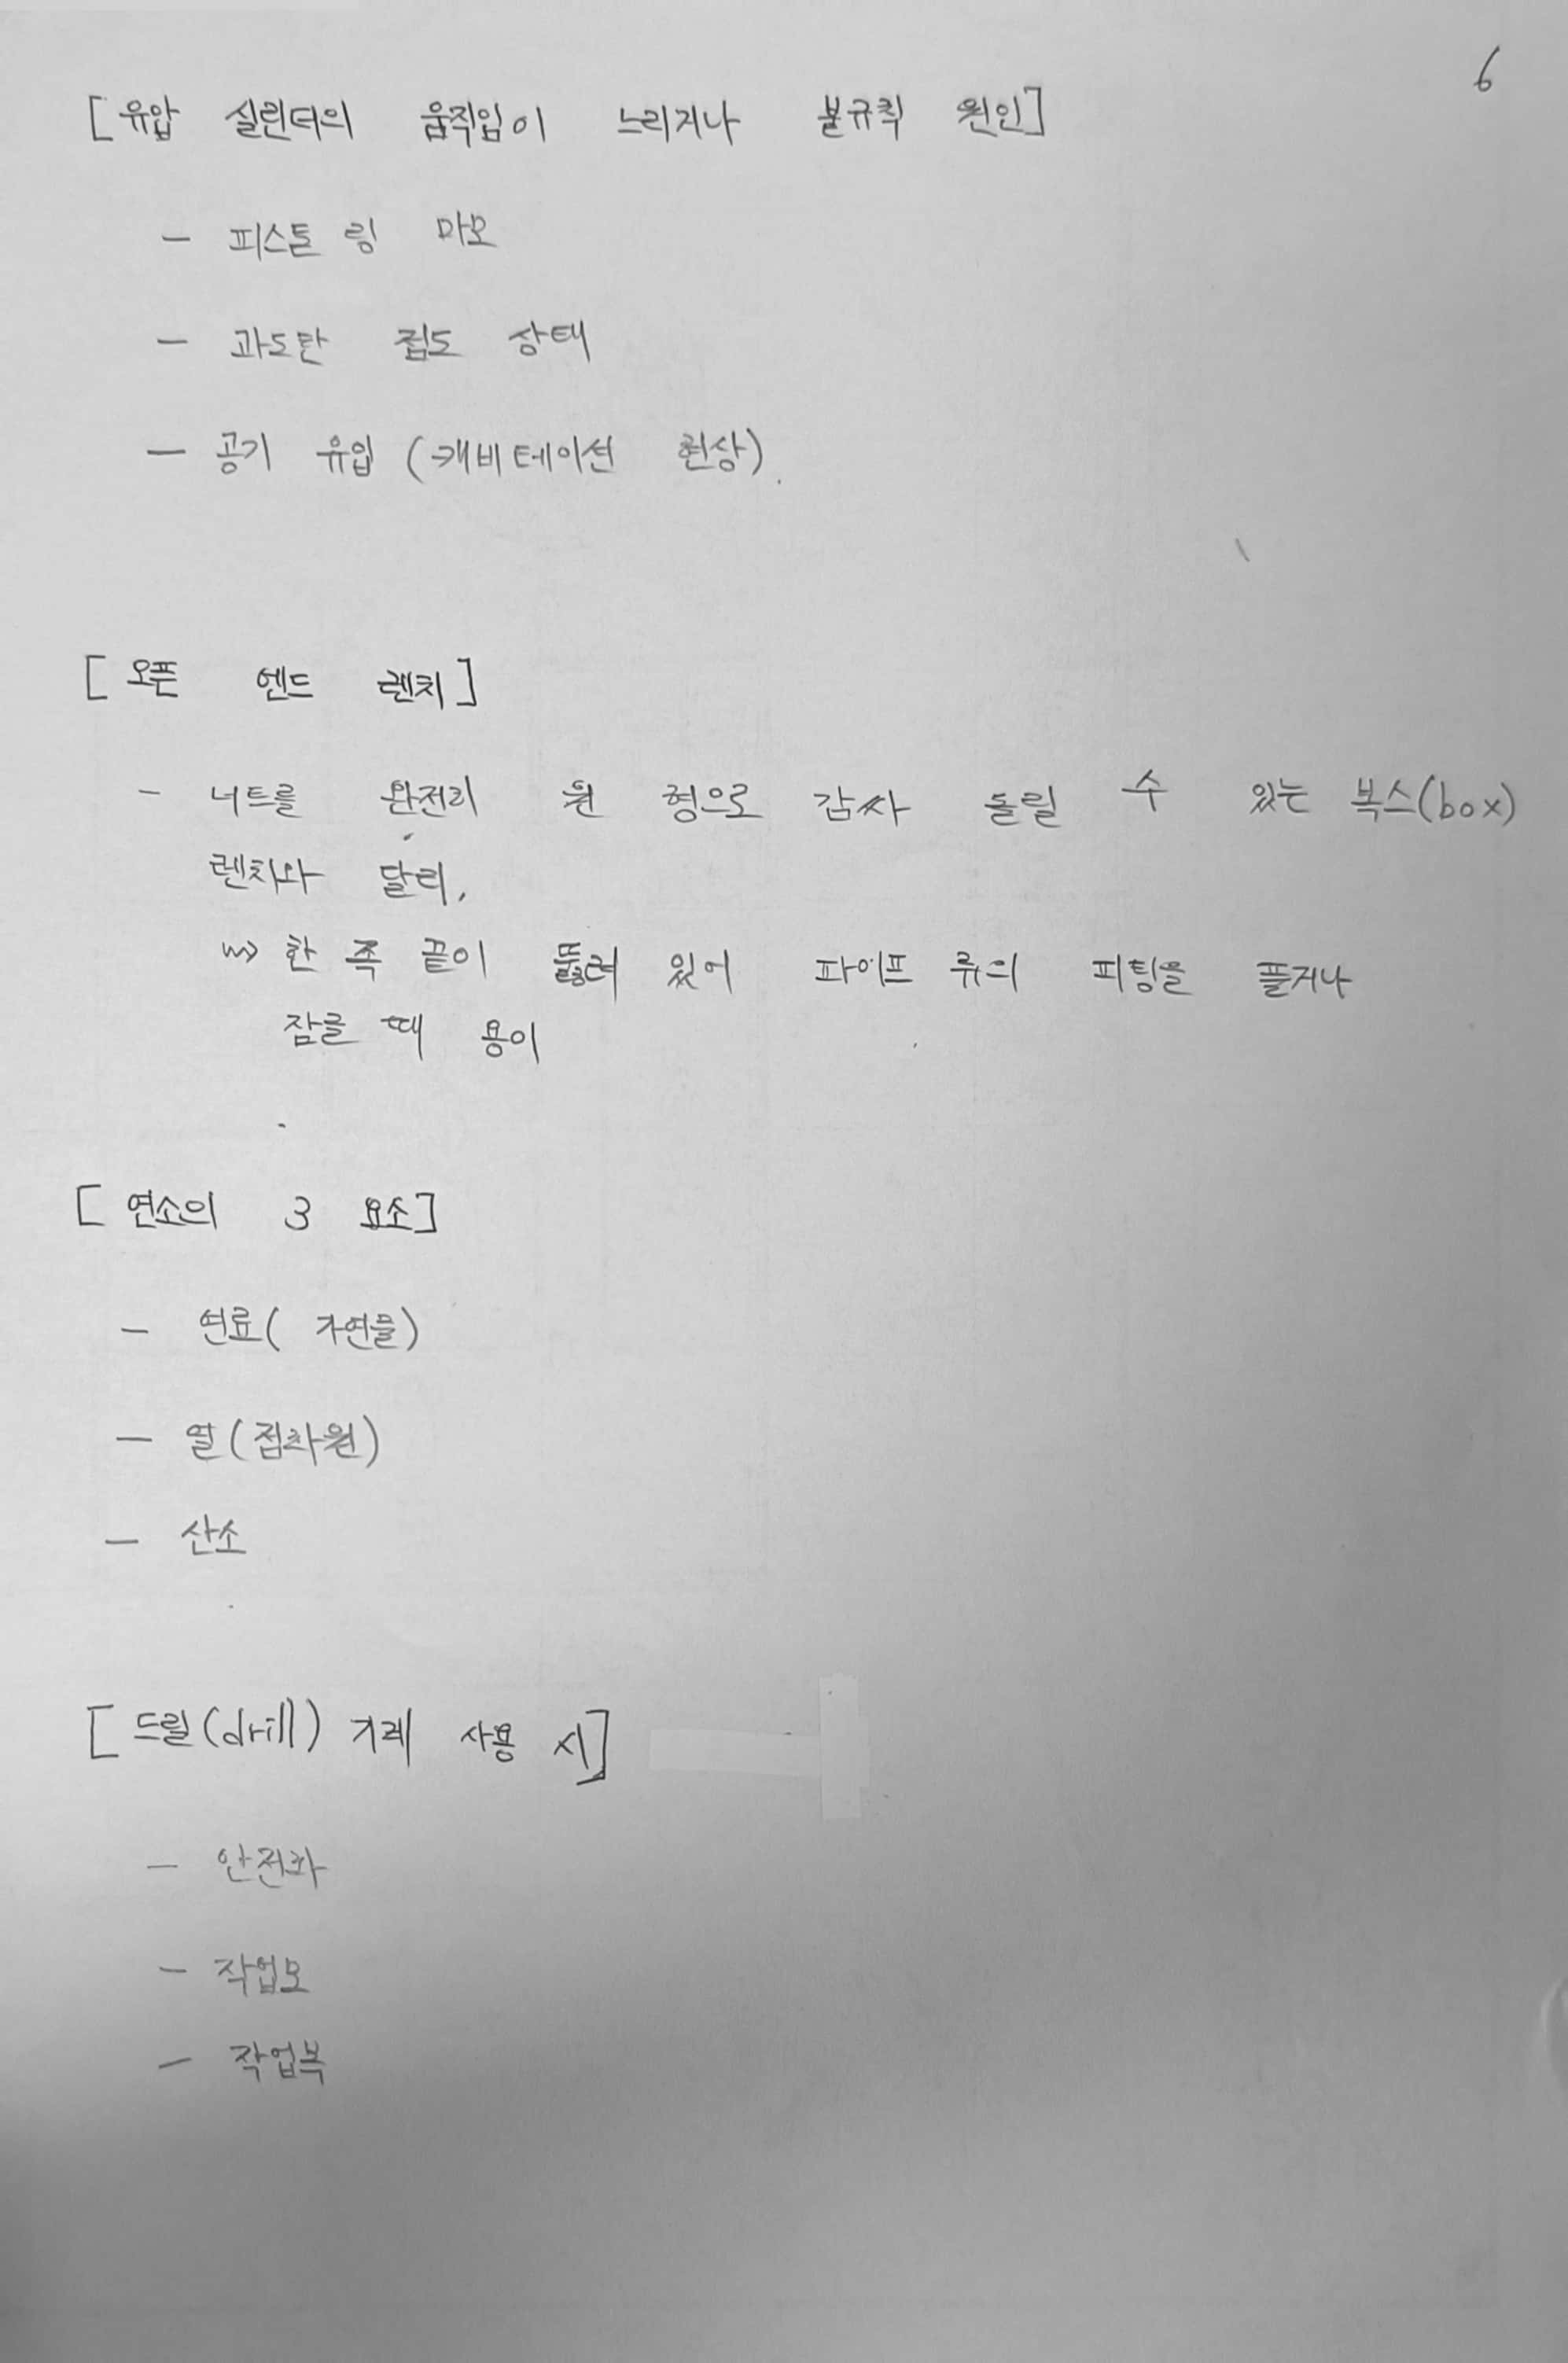 6
[유압 실린더의 움직임이 느리거나 불규칙 원인]
- 피스톤 링 마모
- 과도한 점도 상태
- 공기 유입 (캐비테이션 현상)
[오픈 엔드 렌치]
- 너트를 완전히 원 형으로 감싸 돌릴 수 있는 복스(box)
렌치와 달리,
⇝ 한 쪽 끝이 뚫려 있어 파이프 류의 피팅을 풀거나
잠글 때 용이
[연소의 3 요소]
- 연료( 가연물)
- 열(점화원)
- 산소
[드릴(drill) 기계 사용 시]
- 안전화
- 작업모
- 작업복